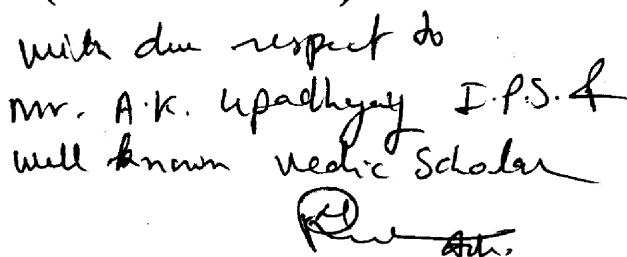 with due respect to
Mr. A.K. Upadhyay I.P.S. &
well known vedic Scholar